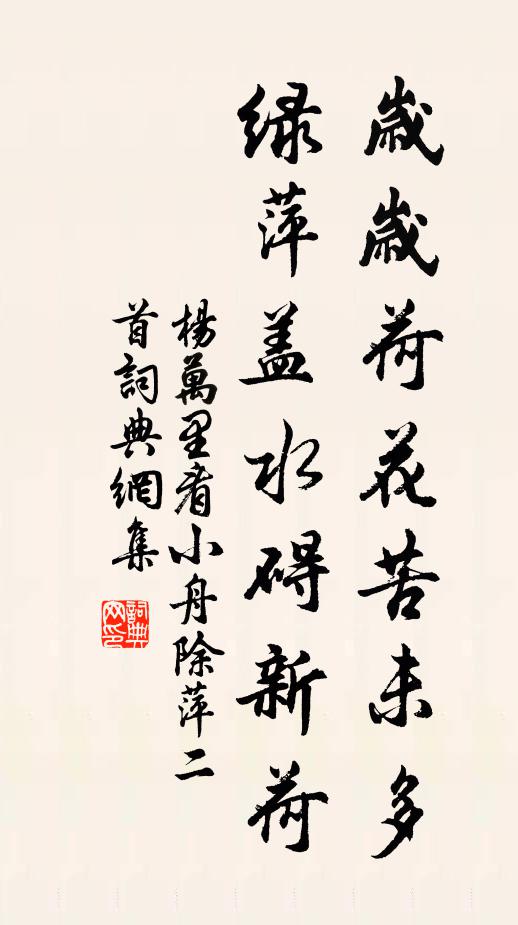 歲歲荷花苦未多
緑萍盖水碍新荷
楊萬里看小舟除萍二
首詞典網集
詞典
网印